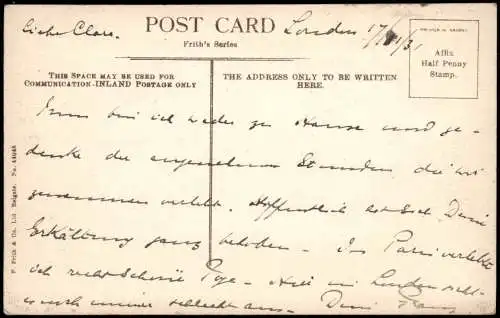 Liebe Clara.
London 17/11/31
POST CARD
Frith's Series
THIS SPACE MAY BE USED FOR
COMMUNICATION-INLAND POSTAGE ONLY
THE ADDRESS ONLY TO BE WRITTEN
HERE.
Affix
Half Penny
Stamp.
F. Frith & Co., Ltd. Reigate. No.
Nun bin ich wieder zu Hause und ge-
denke der angenehmen Stunden, die wir
zusammen verlebt. Hoffentlich hat sich Deine
Erkältung ganz behoben. In Paris verlebte
ich recht schöne Tage. Hier in London sieht
es noch immer schlecht aus. Dein